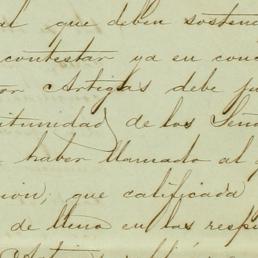 al que deben sostene
contestar ya en conc
or Artigas debe ju
itunidad de los Seño
haber llamado al g
ion, que calificada
de lleno en las respe